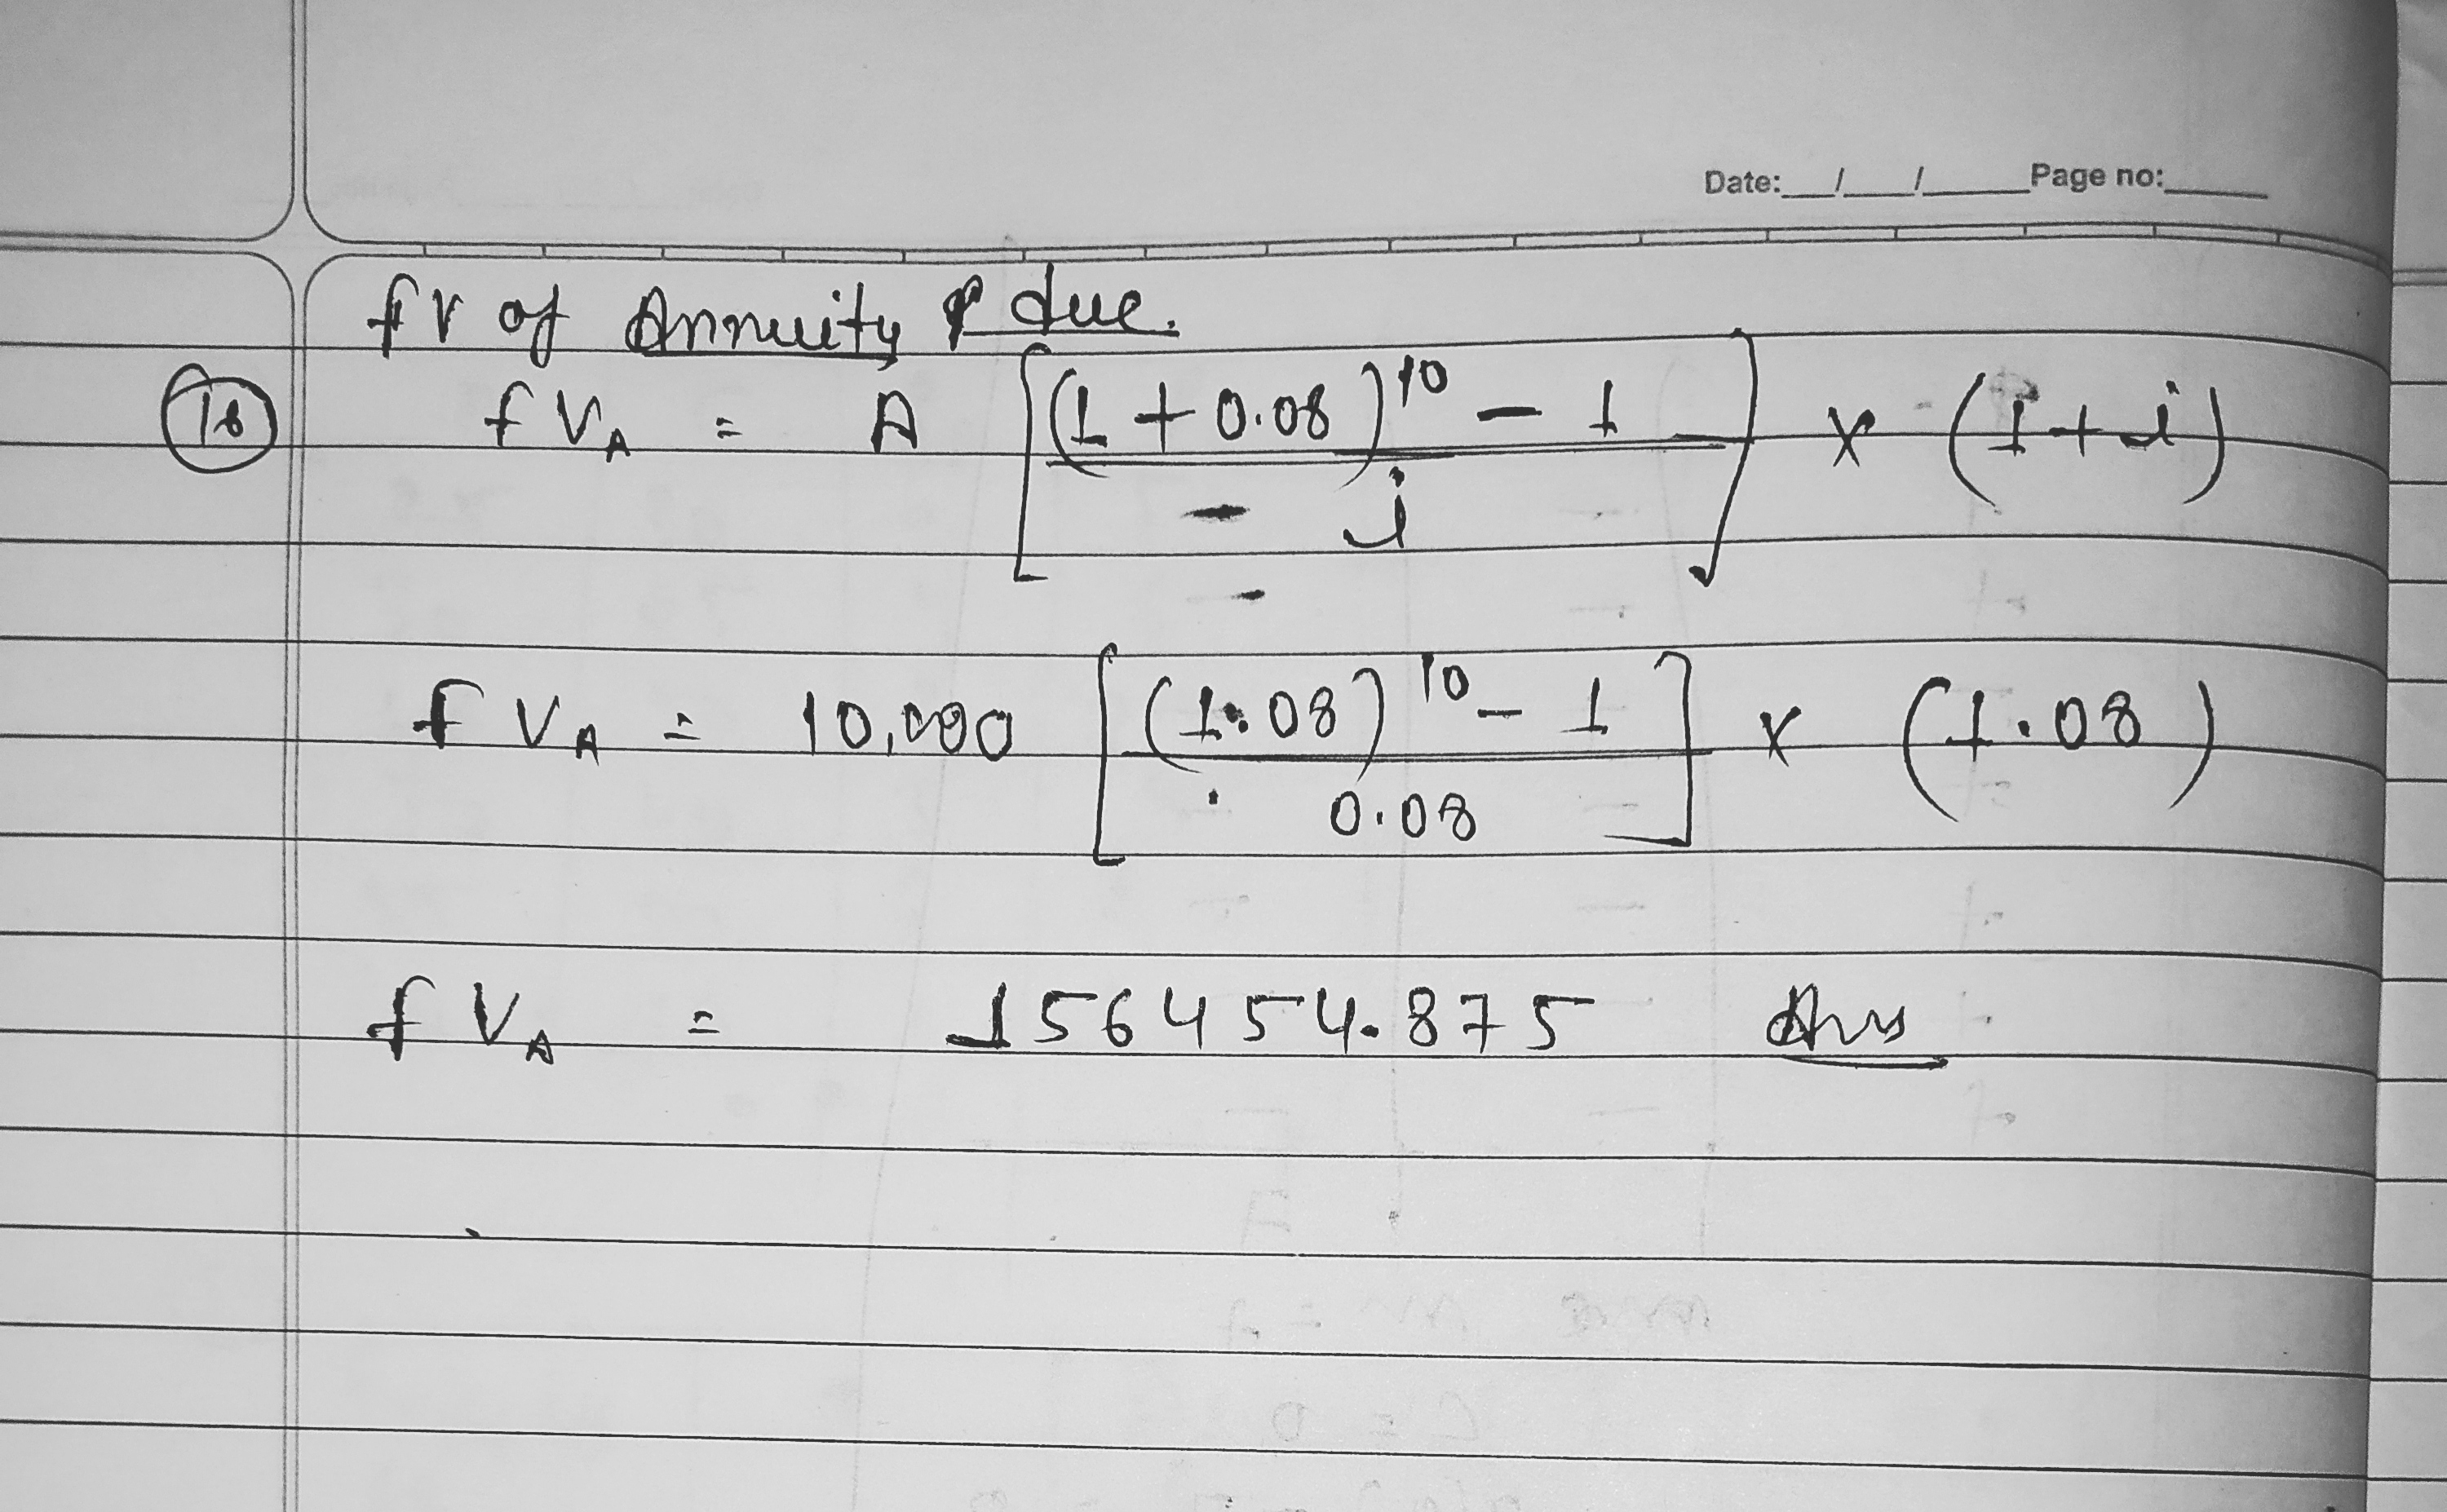 Date:__/__/____ Page no:____
fv of Annuity due.
18
fVA = A [(1 + 0.08)^10 - 1 / i] x (1 + i)
fVA = 10,000 [(1.08)^10 - 1 / 0.08] x (1.08)
fVA = 156454.875 Ans